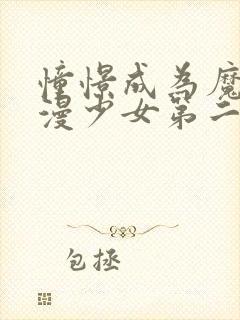 憧憬成为魔
漫少女第二
包拯